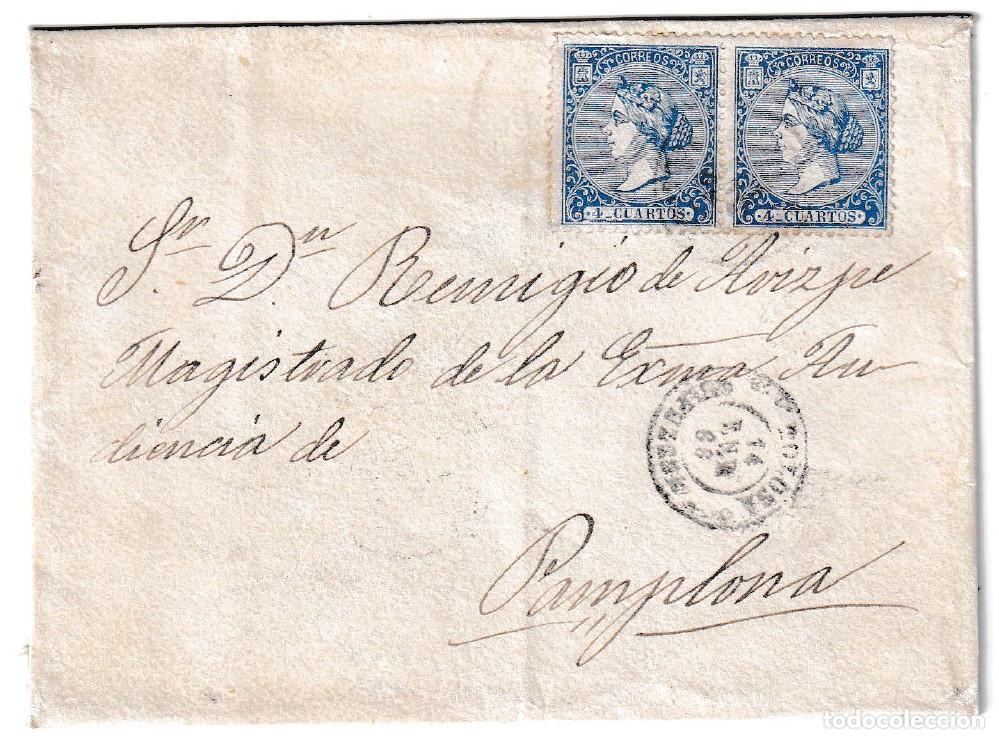 CORREOS CORREOS
4 CUARTOS 4 CUARTOS
Sr. Dn Remigio de Avizpe
Magistrado de la Exma Au
diencia de
TOLOSA
14
ENE
66
Pamplona
todocoleccion